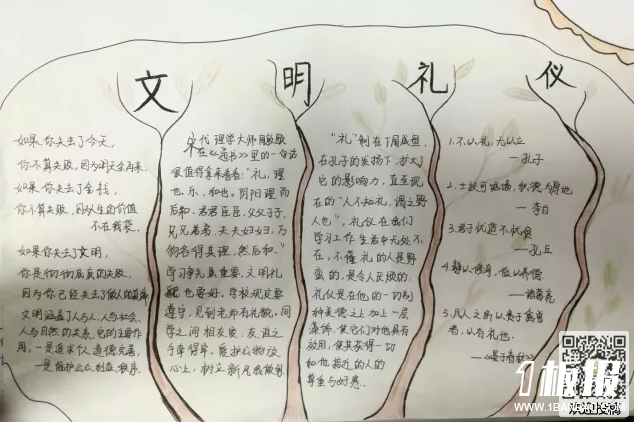 文明礼仪
如果你失去了今天,
你不算失败,因为明天会再来.
如果你失去了金钱,
你不算失败,因为人生的价值
不在钱袋.
如果你失去了文明,
你是彻彻底底的失败,
因为你已经失去了做人的真谛
文明涵盖了人与人,人与社会,
人与自然的关系,它的主要作
用,一是追求个人道德完善,
一是维护公众利益、秩序.
宋代理学大师周敦颐
在《通书》里的一句话
很值得拿来看看:“礼,理
也,乐,和也,阴阳理而
后和,君君臣臣,父父子子,
兄兄弟弟,夫夫妇妇,万
物各得其理,然后和.”
学习争先虽重要,文明礼
也要好.学校规定要
遵守,见到老师有礼貌,同
学之间相友爱,友谊之
手牵得牢,爱护公物放
心上,树立新风我做到
“礼”制在下周成型,
在孔子的发扬下,扩大了
它的影响力,直至现
在的“人不知礼,谓之野
人也”,礼仪在我们
学习工作生活中无处不
在,不懂礼的人是野
蛮的,是令人厌烦的.
礼仪是在他的一切别
种美德之上加上一层
藻饰,使它们对他具有
效用,使其获得一切
和他接近的人的
尊重与好感.
1.不以礼,无以立
—孔子
2.土扶可成墙,积德为厚地
—李白
3.君子忧道不忧贫
—孔丘
4.静以修身,俭以养德
—诸葛亮
5.凡人之所以贵于禽兽
者,以有礼也.
—《晏子春秋》
1板报
WWW.1BANBAO.COM
欢迎投稿